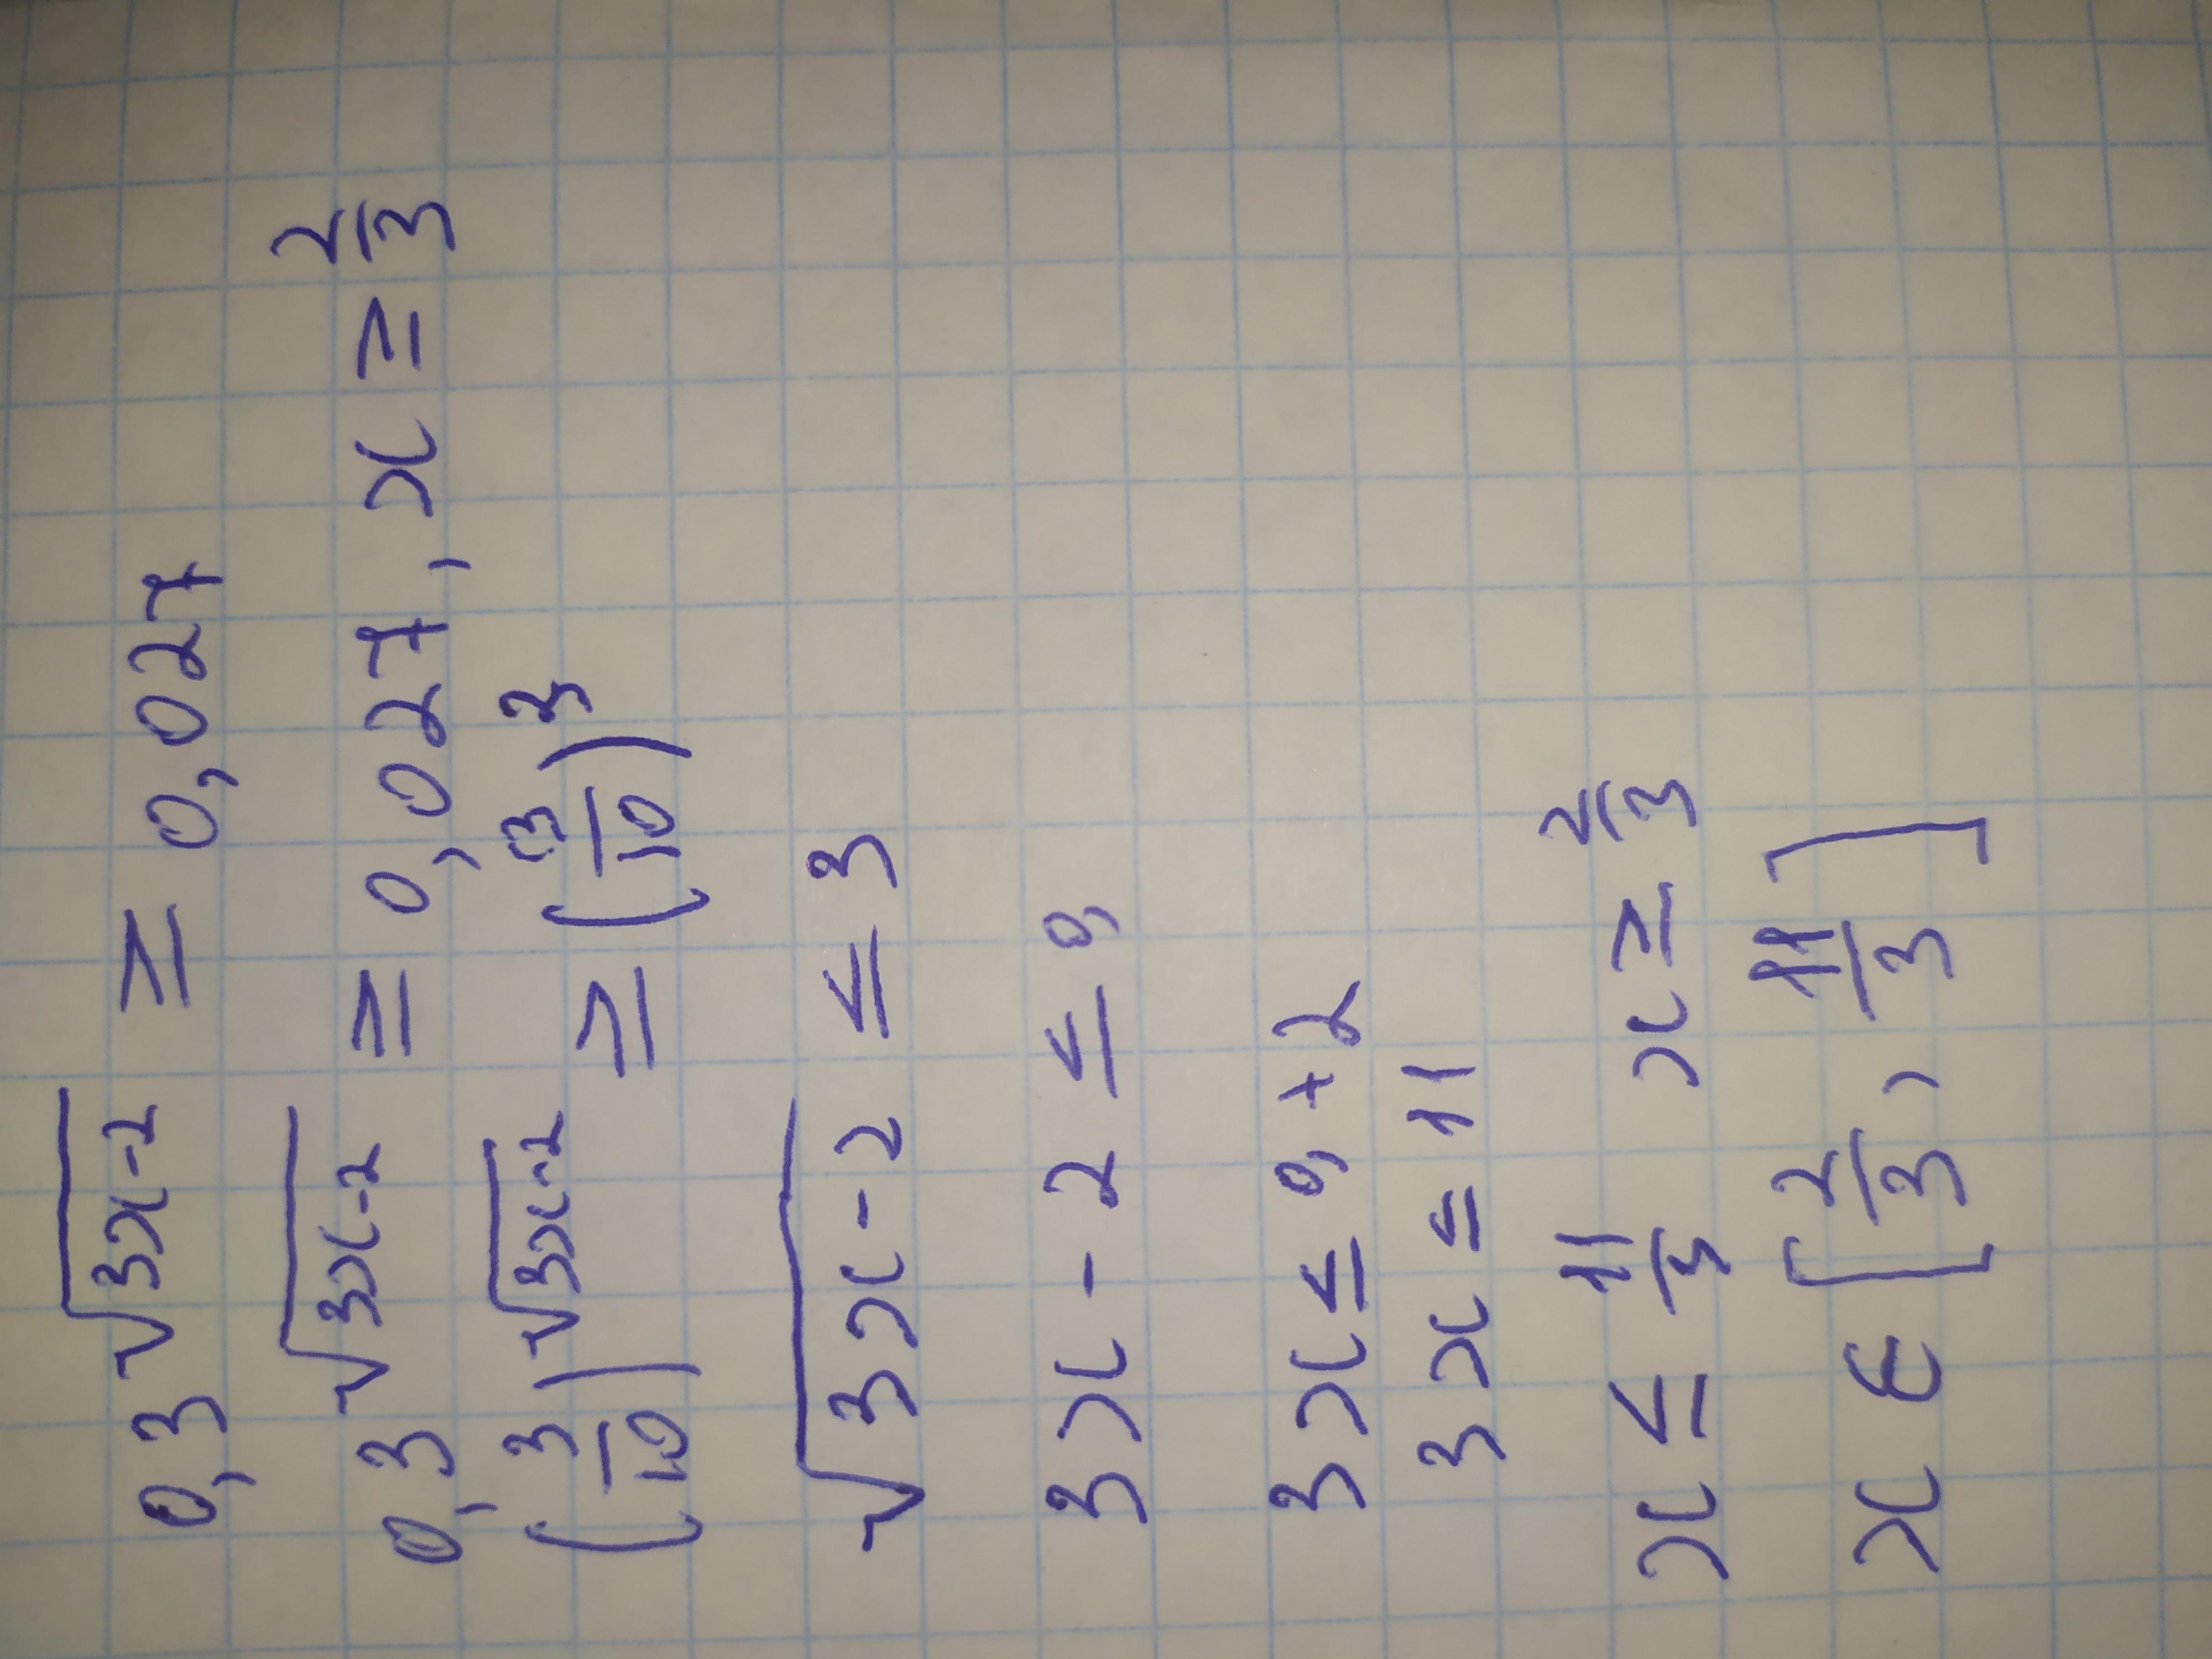 0,3^√(3x-2) ≥ 0,027
0,3^√(3x-2) ≥ 0,027, x ≥ 2/3
(3/10)^√(3x-2) ≥ (3/10)^3
√(3x-2) ≤ 3
3x - 2 ≤ 9
3x ≤ 9 + 2
3x ≤ 11
x ≤ 11/3 x ≥ 2/3
x ∈ [2/3, 11/3]